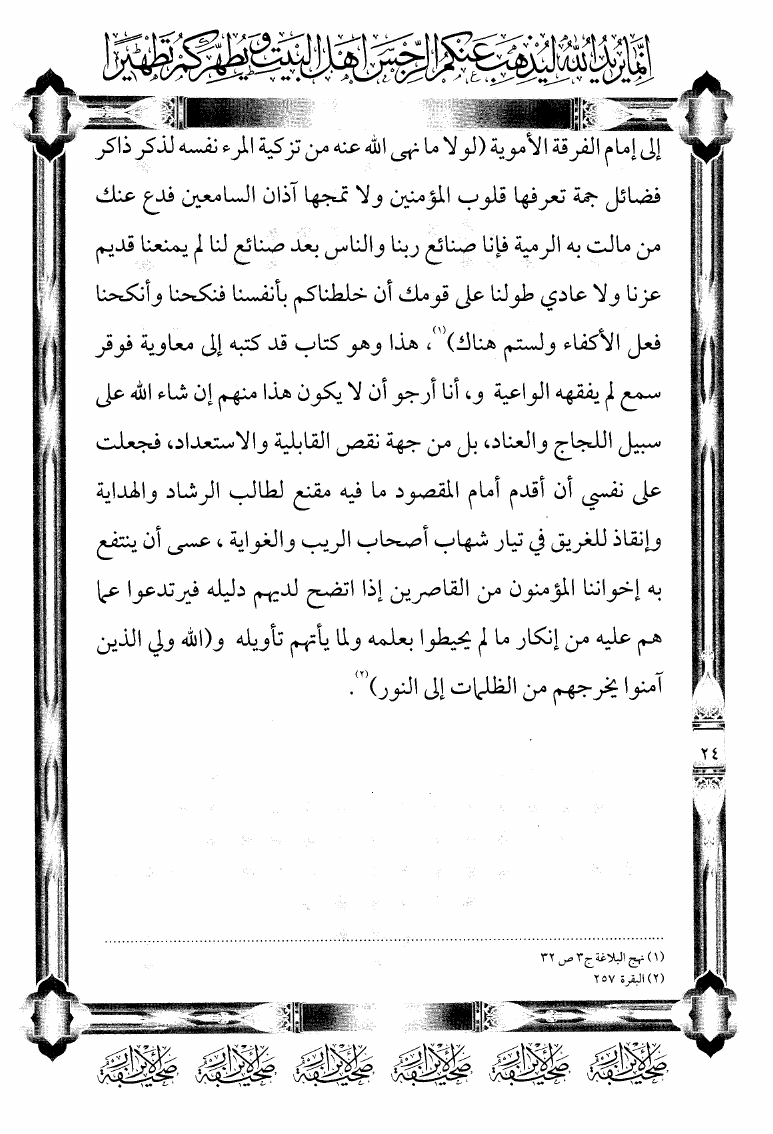 إنما يريد الله ليذهب عنكم الرجس أهل البيت ويطهركم تطهيرا
إلى إمام الفرقة الأموية (لولا ما نهى الله عنه من تزكية المرء نفسه لذكر ذاكر
فضائل جمة تعرفها قلوب المؤمنين ولا تمجها آذان السامعين فدع عنك
من مالت به الرمية فإنا صنائع ربنا والناس بعد صنائع لنا لم يمنعنا قديم
عزنا ولا عادي طولنا على قومك أن خلطناكم بأنفسنا فنكحنا وأنكحنا
فعل الأكفاء ولستم هناك)(١)، هذا وهو كتاب قد كتبه إلى معاوية فوقر
سمع لم يفقهه الواعية و، أنا أرجو أن لا يكون هذا منهم إن شاء الله على
سبيل اللجاج والعناد، بل من جهة نقص القابلية والاستعداد، فجعلت
على نفسي أن أقدم أمام المقصود ما فيه مقنع لطالب الرشاد والهداية
وإنقاذ للغريق في تيار شهاب أصحاب الريب والغواية ، عسى أن ينتفع
به إخواننا المؤمنون من القاصرين إذا اتضح لديهم دليله فيرتدعوا عما
هم عليه من إنكار ما لم يحيطوا بعلمه ولما يأتهم تأويله و(الله ولي الذين
آمنوا يخرجهم من الظلمات إلى النور)(٢).
٢٤
(١) نهج البلاغة ج٣ ص ٣٢
(٢) البقرة ٢٥٧
صحيفة الأبرار صحيفة الأبرار صحيفة الأبرار صحيفة الأبرار صحيفة الأبرار صحيفة الأبرار